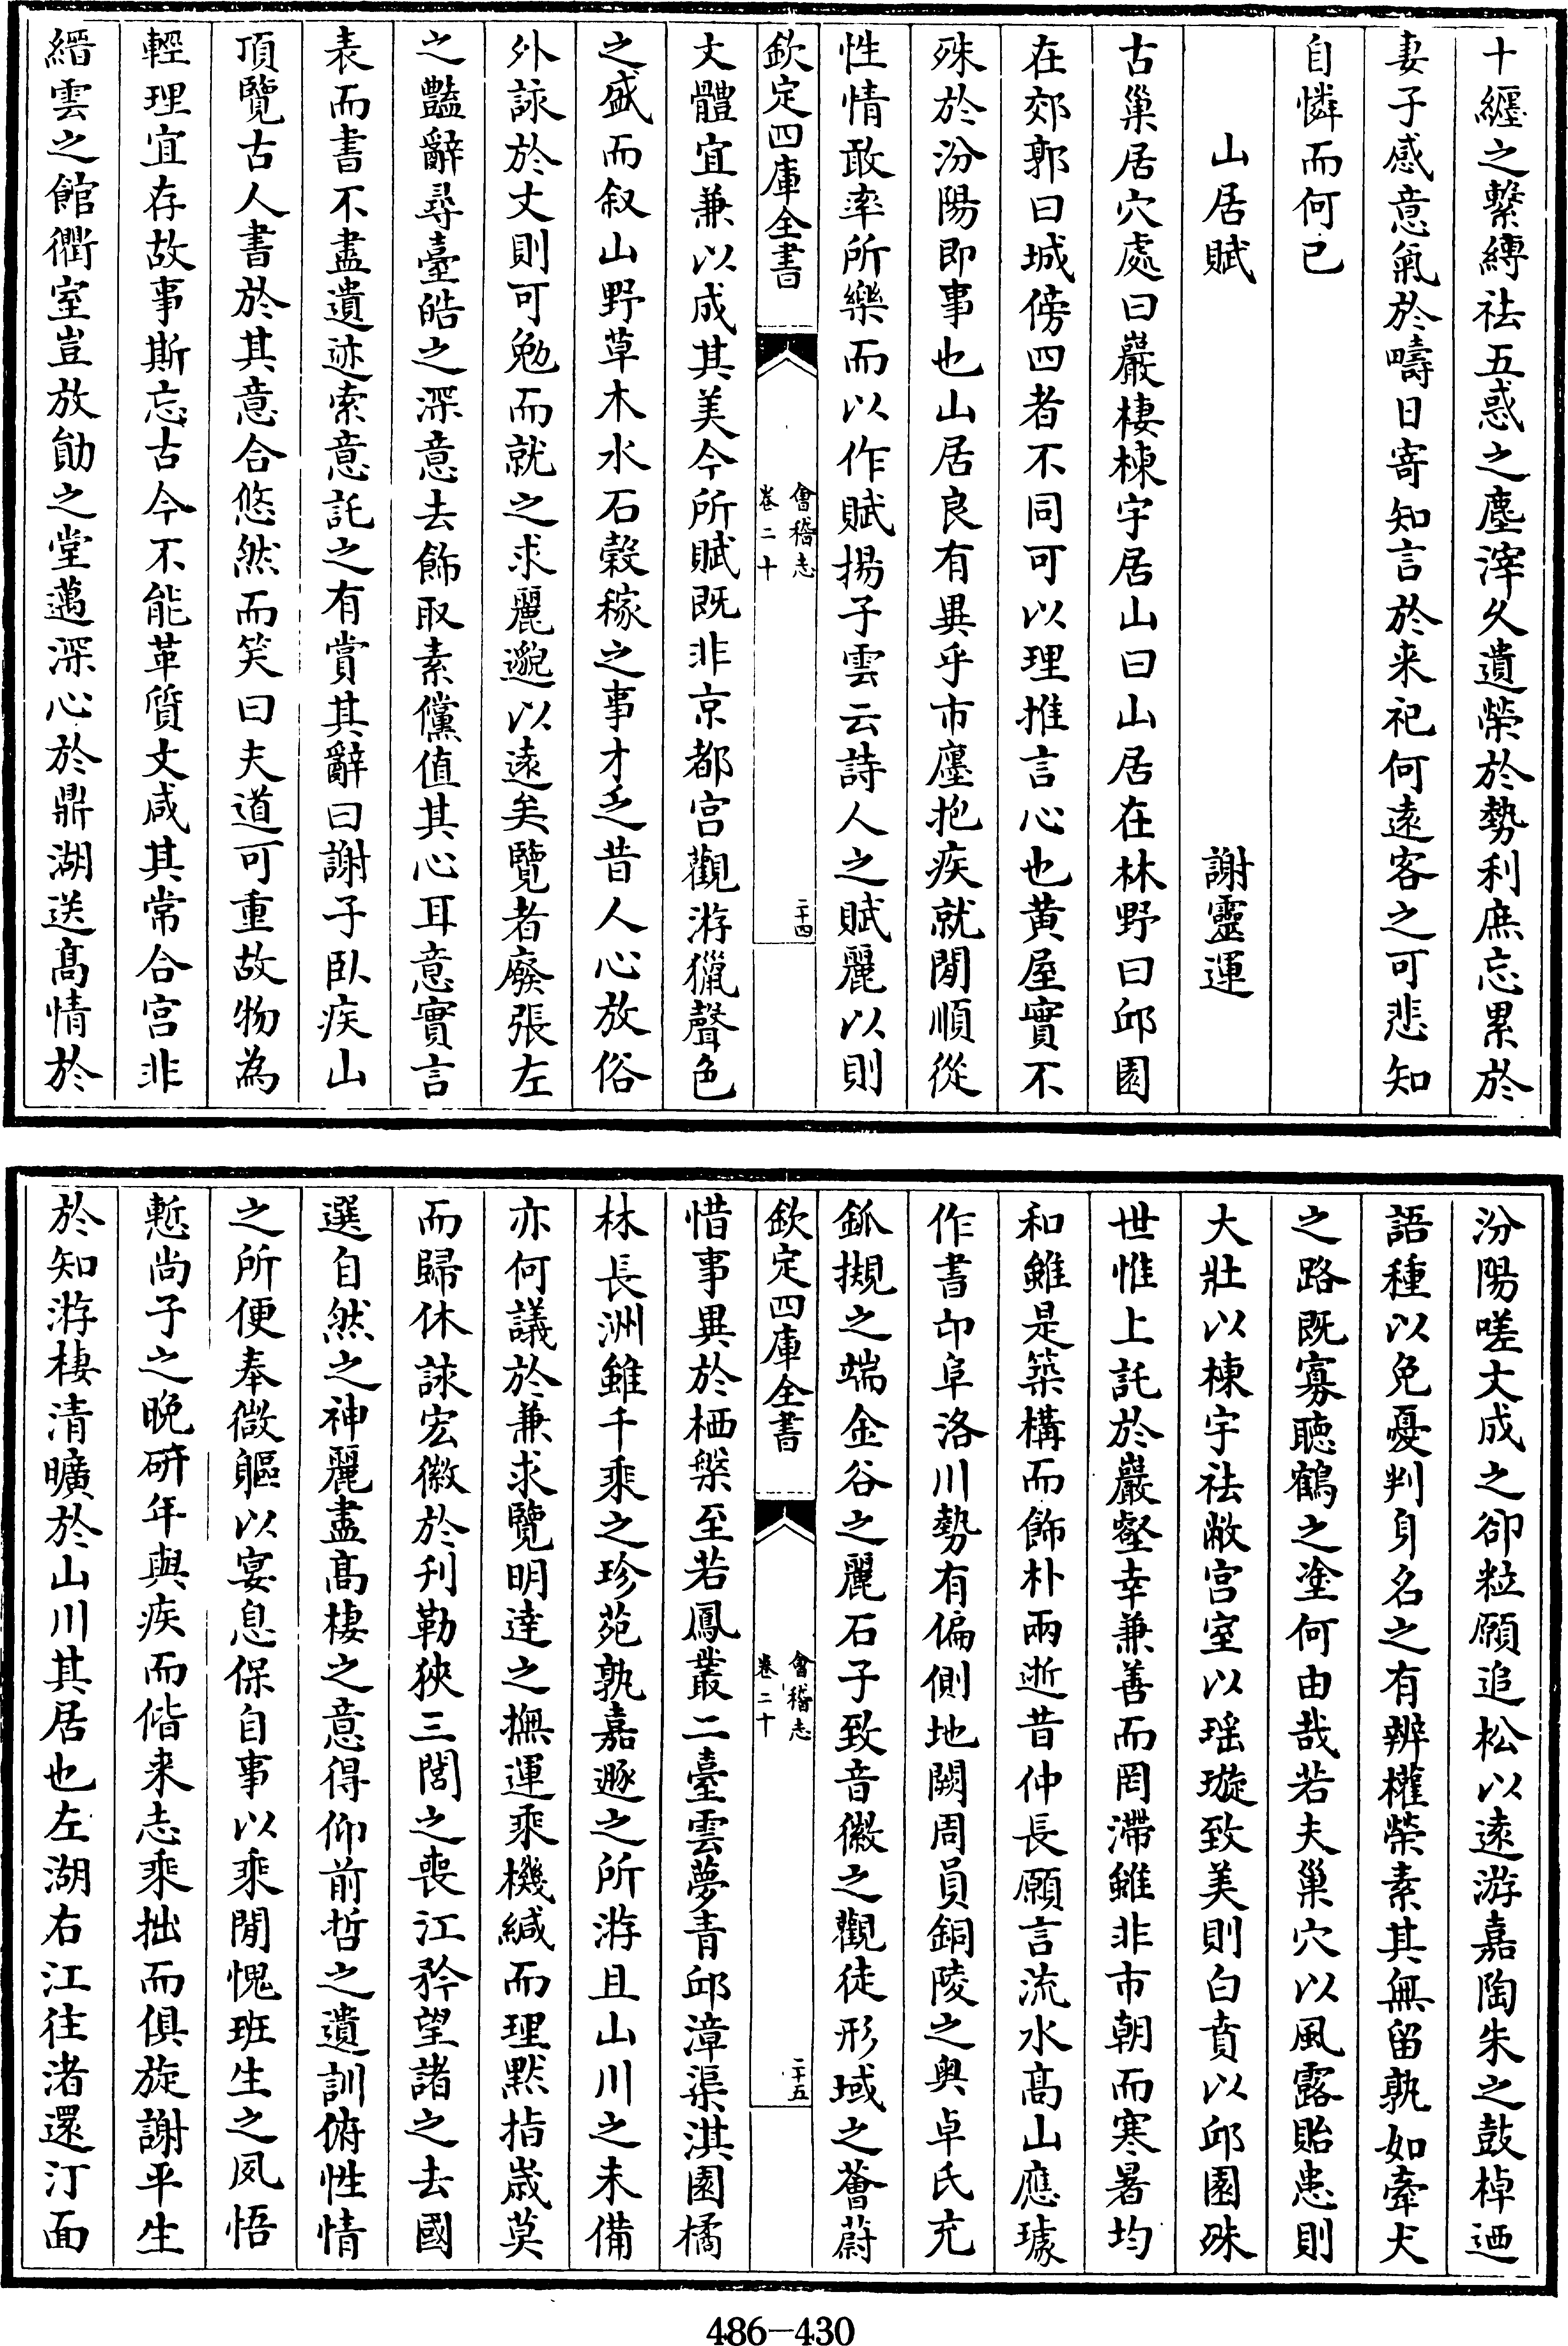 十纒之繫縛祛五惑之塵滓久遺榮於勢利庶忘累於
妻子感意氣於疇日寄知言於来祀何遠客之可悲知
自憐而何已
山居賦　謝靈運
古巢居穴處曰巖棲棟宇居山曰山居在林野曰邱園
在郊郭曰城傍四者不同可以理推言心也黄屋實不
殊於汾陽即事也山居良有異乎市廛抱疾就閒順從
性情敢率所樂而以作賦揚子雲云詩人之賦麗以則
欽定四庫全書
會稽志
卷二十
二十四
文體宜兼以成其美今所賦既非京都宫觀游獵聲色
之盛而叙山野草木水石穀稼之事才乏昔人心放俗
外詠於文則可勉而就之求麗邈以遠矣覽者廢張左
之豔辭尋臺皓之深意去飾取素儻值其心耳意實言
表而書不盡遺迹索意託之有賞其辭曰謝子臥疾山
頂覽古人書於其意合悠然而笑曰夫道可重故物為
輕理宜存故事斯忘古今不能革質文咸其常合宫非
縉雲之館衢室豈放勛之堂邁深心於鼎湖送髙情於
汾陽嗟文成之卻粒願追松以遠游嘉陶朱之鼓棹迺
語種以免憂判身名之有辨權榮素其無留孰如牽犬
之路既寡聽鶴之塗何由哉若夫巢穴以風露貽患則
大壯以棟宇祛敝宫室以瑶璇致美則白賁以邱園殊
世惟上託於巖壑幸兼善而罔滯雖非市朝而寒暑均
和雖是築構而飾朴兩逝昔仲長願言流水髙山應璩
作書邙阜洛川勢有偏側地闕周員銅陵之奥卓氏充
釽摫之端金谷之麗石子致音徽之觀徒形域之薈蔚
欽定四庫全書
會稽志
卷二十
二十五
惜事異於栖槃至若鳳叢二臺雲夢青邱漳渠淇園橘
林長洲雖千乘之珍苑孰嘉遯之所游且山川之未備
亦何議於兼求覽明達之撫運乘機緘而理黙指歳莫
而歸休詠宏徽於刋勒狹三閭之喪江矜望諸之去國
選自然之神麗盡髙棲之意得仰前哲之遺訓俯性情
之所便奉微軀以宴息保自事以乘閒愧班生之夙悟
慙尚子之晚研年與疾而偕来志乘拙而俱旋謝平生
於知游棲清曠於山川其居也左湖右江往渚還汀面
486-430